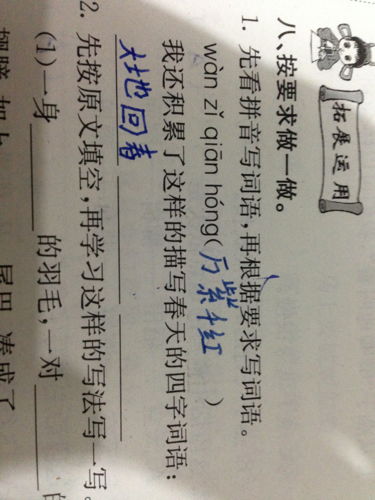 拓展运用
八、按要求做一做。
1. 先看拼音写词语,再根据要求写词语。
wàn zǐ qiān hóng(万紫千红 )
我还积累了这样的描写春天的四字词语:
大地回春
2. 先按原文填空,再学习这样的写法写一写。
(1)一身 的羽毛,一对
尾巴 凑成了